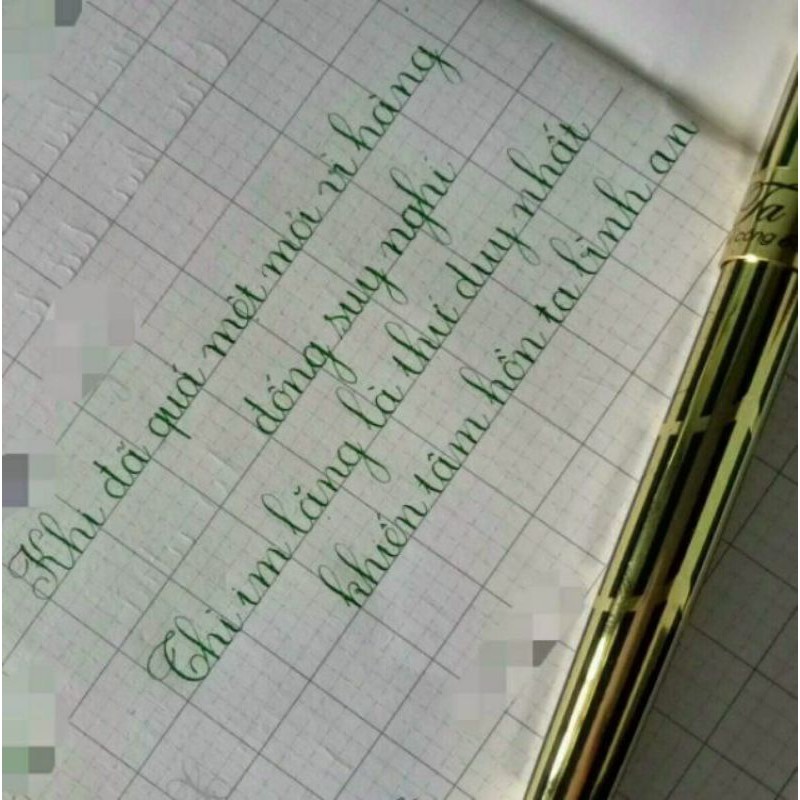 Khi đã quá mệt mỏi vì hàng
đống suy nghĩ
Thì im lặng là thứ duy nhất
khiến tâm hồn ta bình an